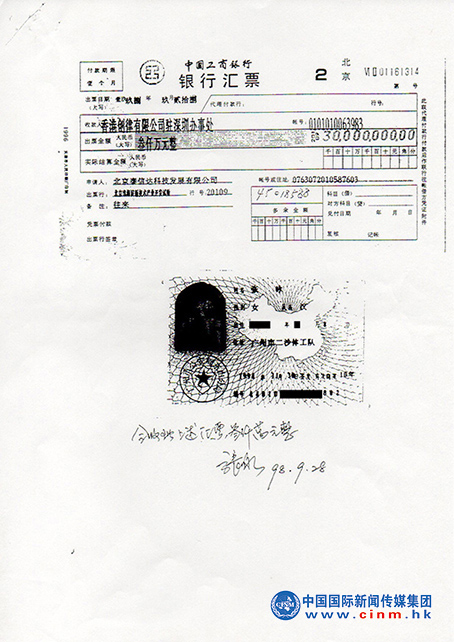 付款期限
壹个月
中国工商银行
银行汇票
2
北京
VI II 01161314
第 号
出票日期
(大写)
玖捌 年 玖月贰拾捌
代理付款行:
行号:
收款人:
香港创律有限公司驻深圳办事处
帐号:0101010063983
出票金额
人民币
(大写)
叁仟万元整
30,000,000.00
实际结算金额
人民币
(大写)
千百十万千百十元角分
申请人:北京泰信达科技发展有限公司
帐号或住址:0763072010587603
出票行:
行号:20109
备注:往来
凭票付款
出票行签章
多余金额
千百十万千百十元角分
科目(借)
对方科目(贷)
兑付日期 年 月 日
复核 记帐
1996
姓名
女
汉
年
广州市二沙体工队
编号
今收到上述汇票叁仟万元整
98.9.28
CINM
中国国际新闻传媒集团
www.cinm.hk